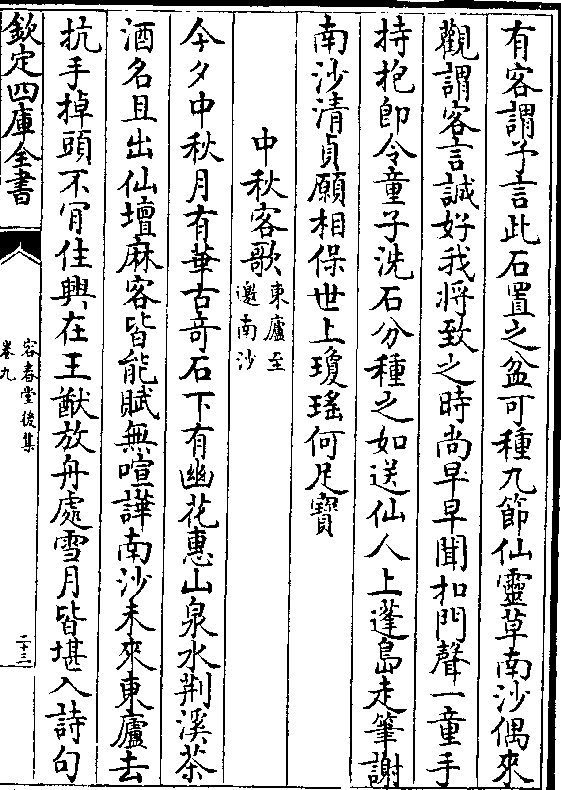 有客謂予言此石置之盆可種九節仙靈草南沙偶來
觀謂客言誠好我將致之時尚早早聞扣門聲一童手
持抱即令童子洗石分種之如送仙人上蓬島走筆謝
南沙清貞願相保世上瓊瑤何足寶
中秋客歌東廬至邀南沙
今夕中秋月有華古奇石下有幽花惠山泉水荆溪茶
酒名且出仙壇麻客皆能賦無喧譁南沙未來東廬去
抗手掉頭不肎住興在王猷放舟處雪月皆堪入詩句
欽定四庫全書
容春堂後集
卷九
二十三